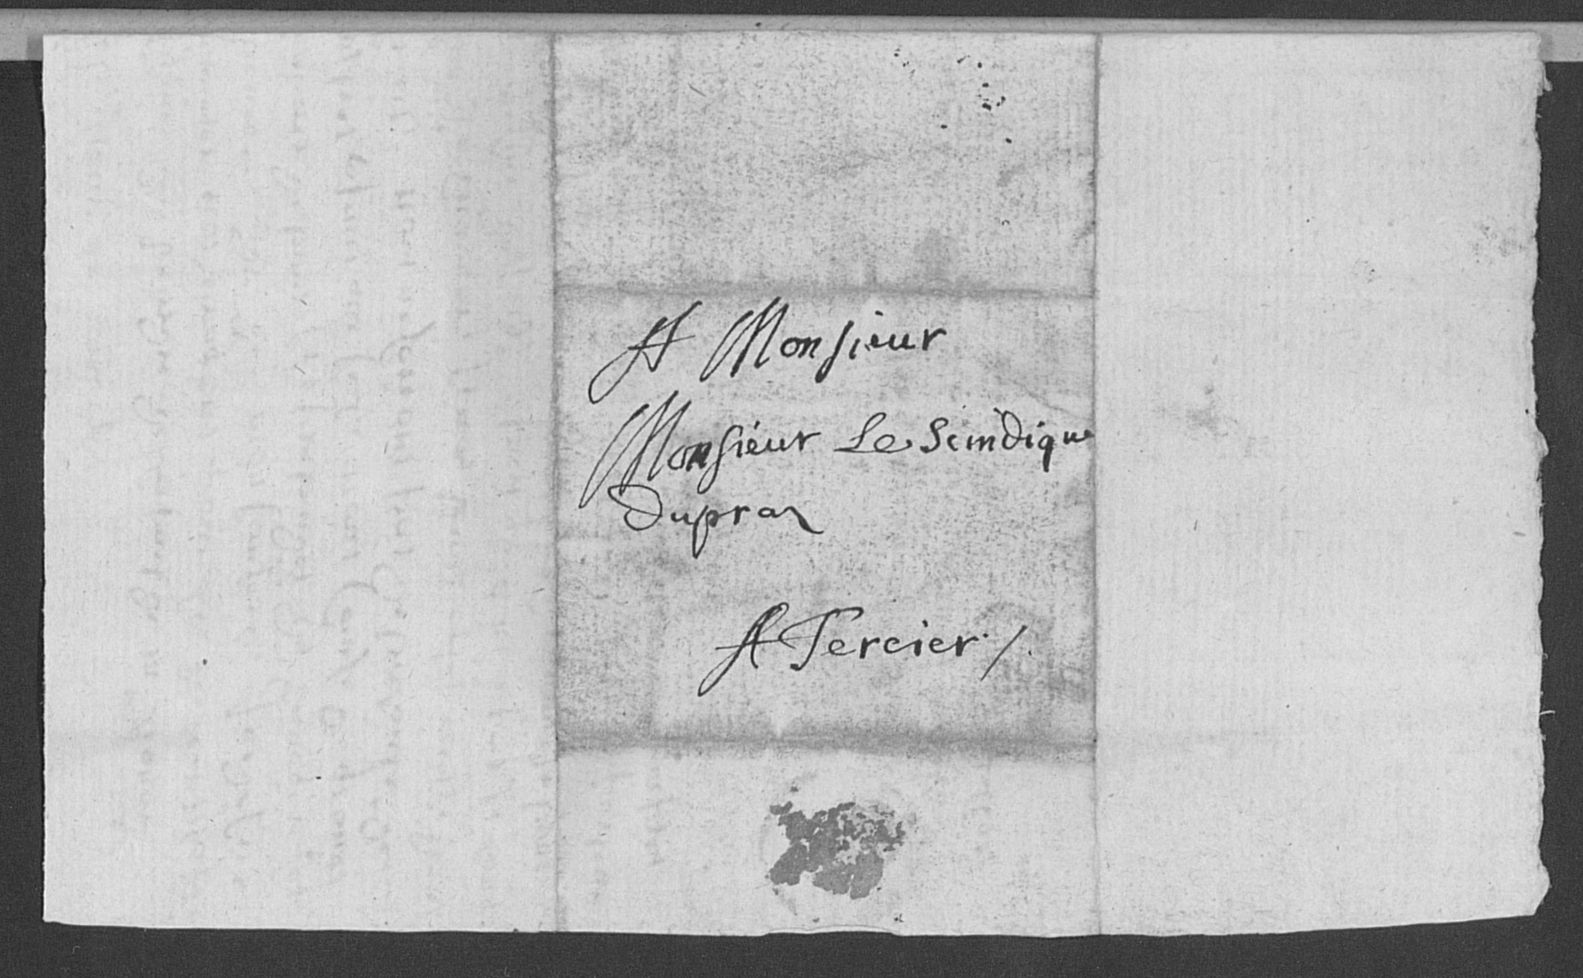 A Monsieur
Monsieur Le Scindique
Dupraz
A Tercier /.